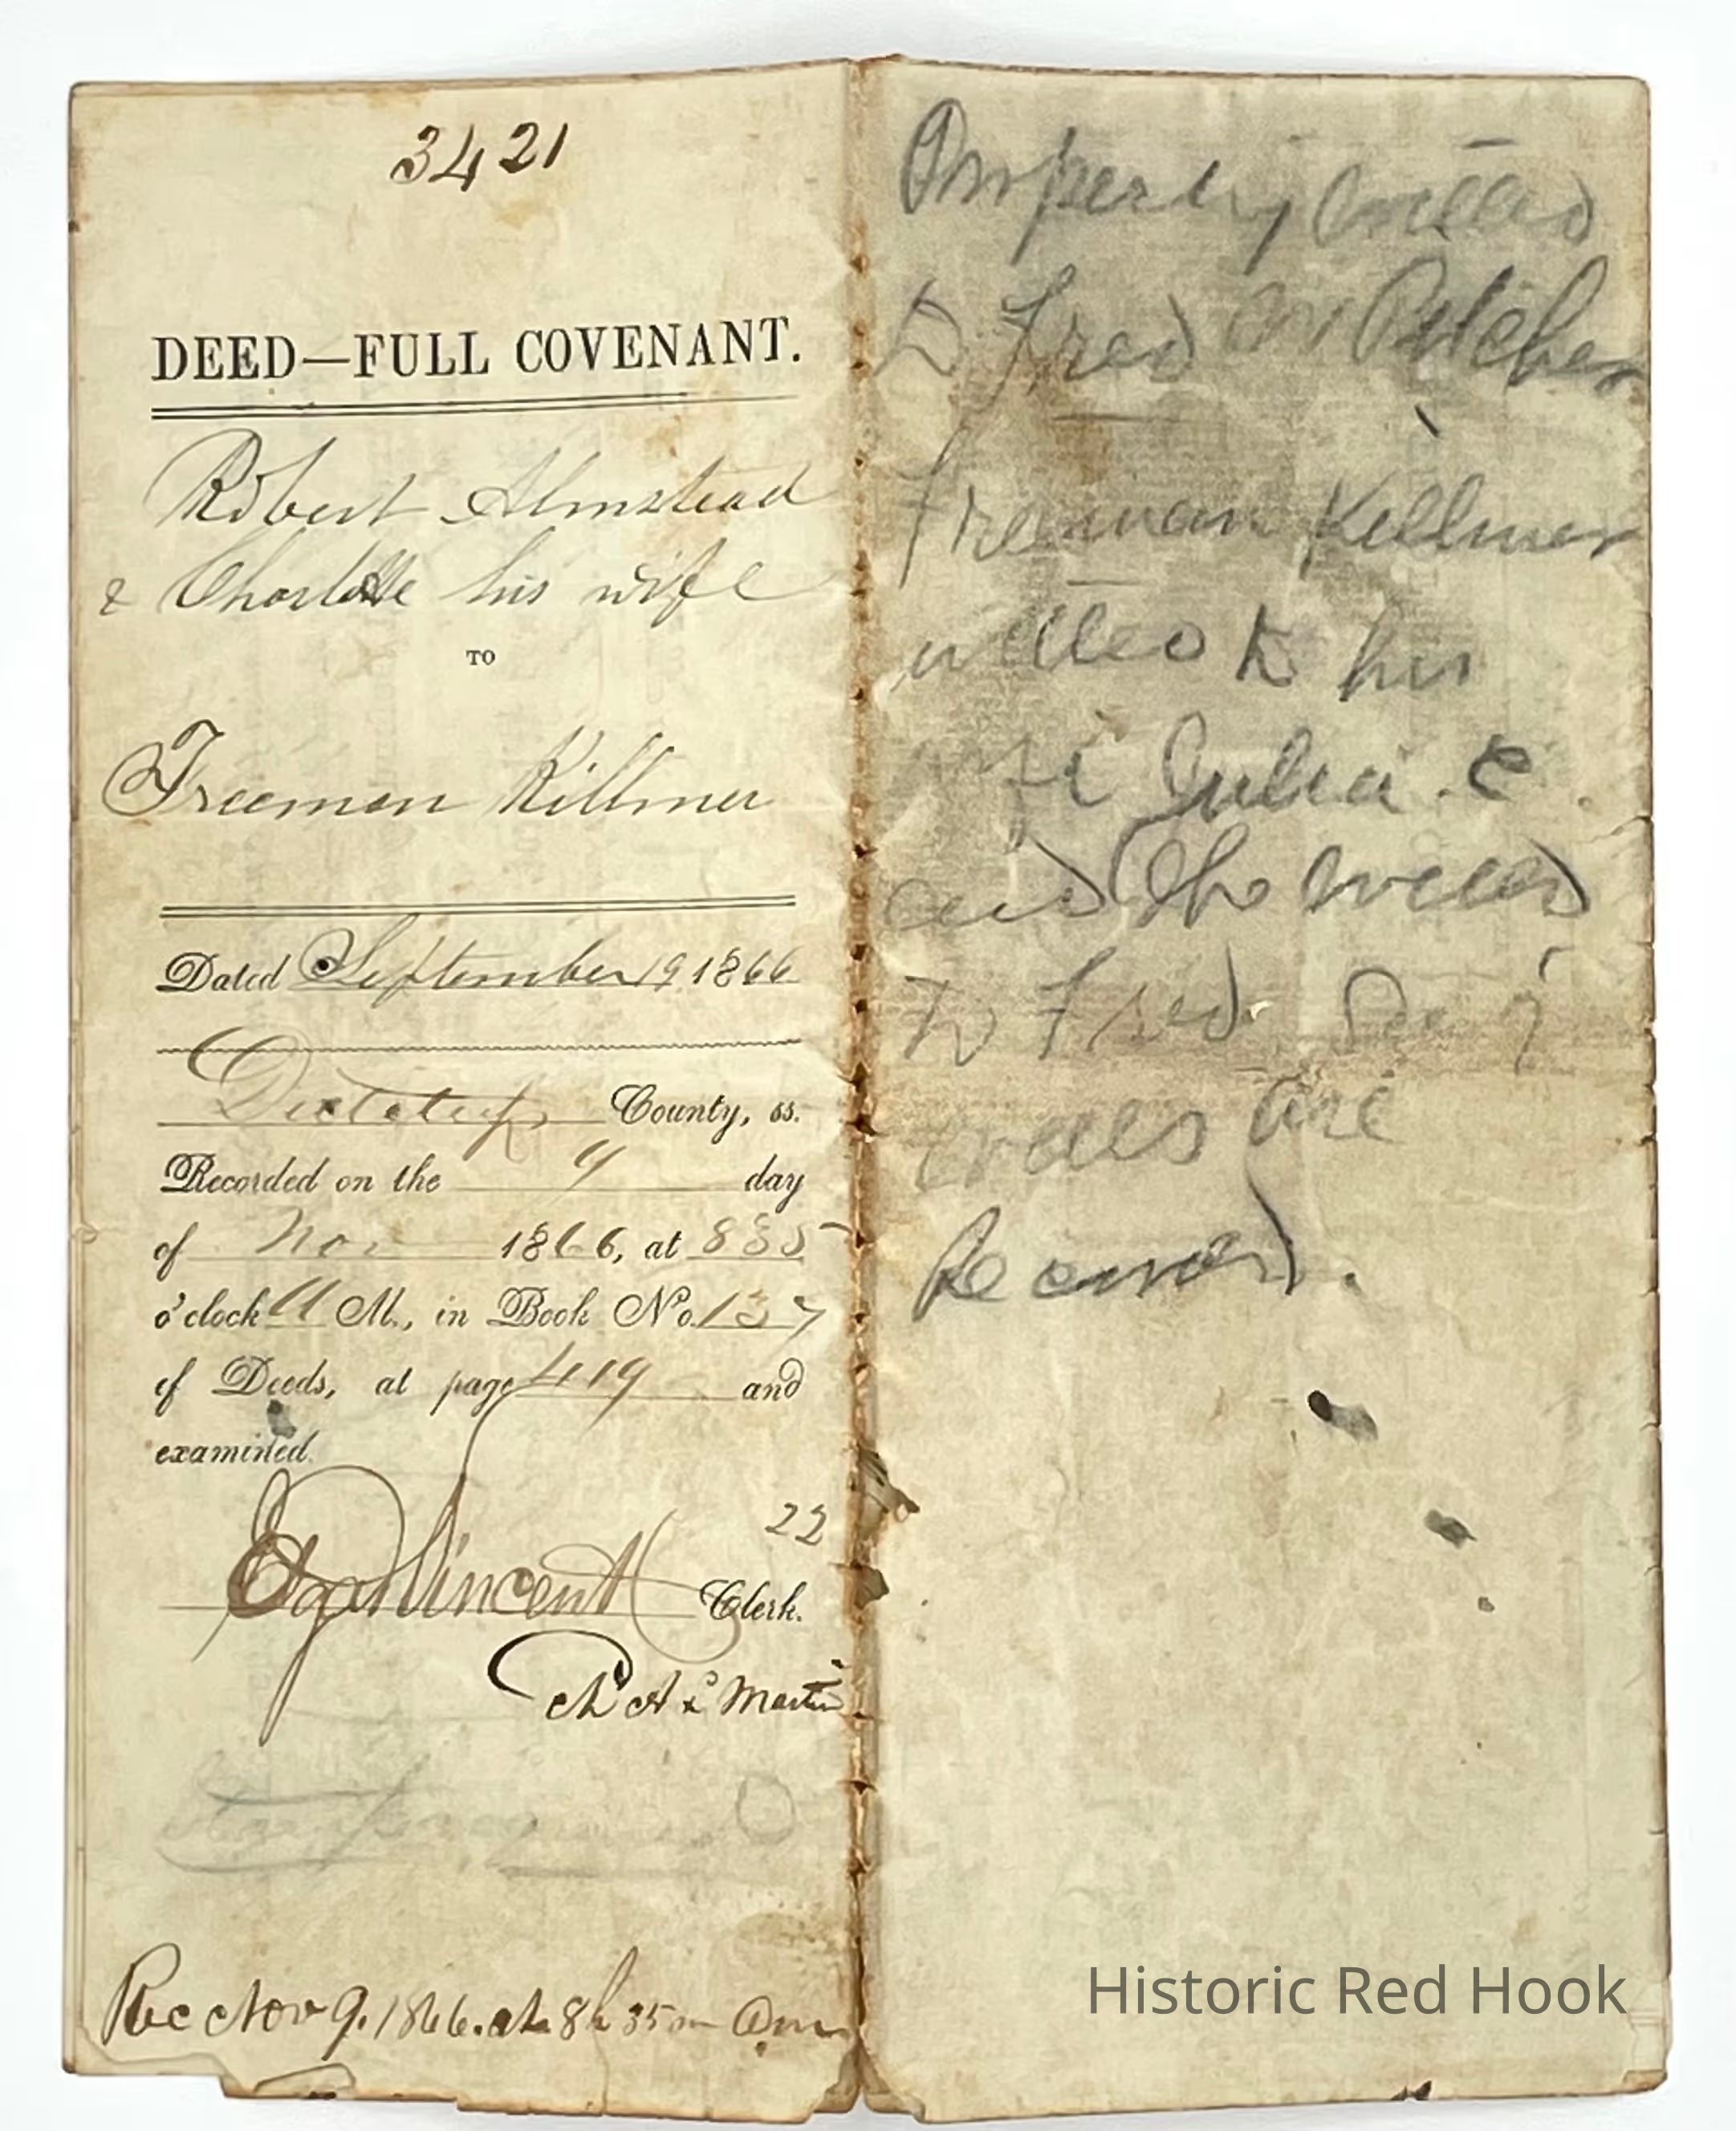 3421
DEED—FULL COVENANT.
Robert Almstead
& Charlotte his wife
TO
Freeman Killmer
Dated September 19 1866
County, ss.
Recorded on the 9 day
of Nov 1866, at 835
o'clock A M., in Book No. 137
of Deeds, at page 419 and
examined.
22
Vincent Clerk.
Martin
Rec Nov 9. 1866. at 8h 35m am
Property willed
to Fred Pitcher
Freeman Killmer
willed to his
wife Julia. E.
and she willed
to Fred.
are
Record.
Historic Red Hook